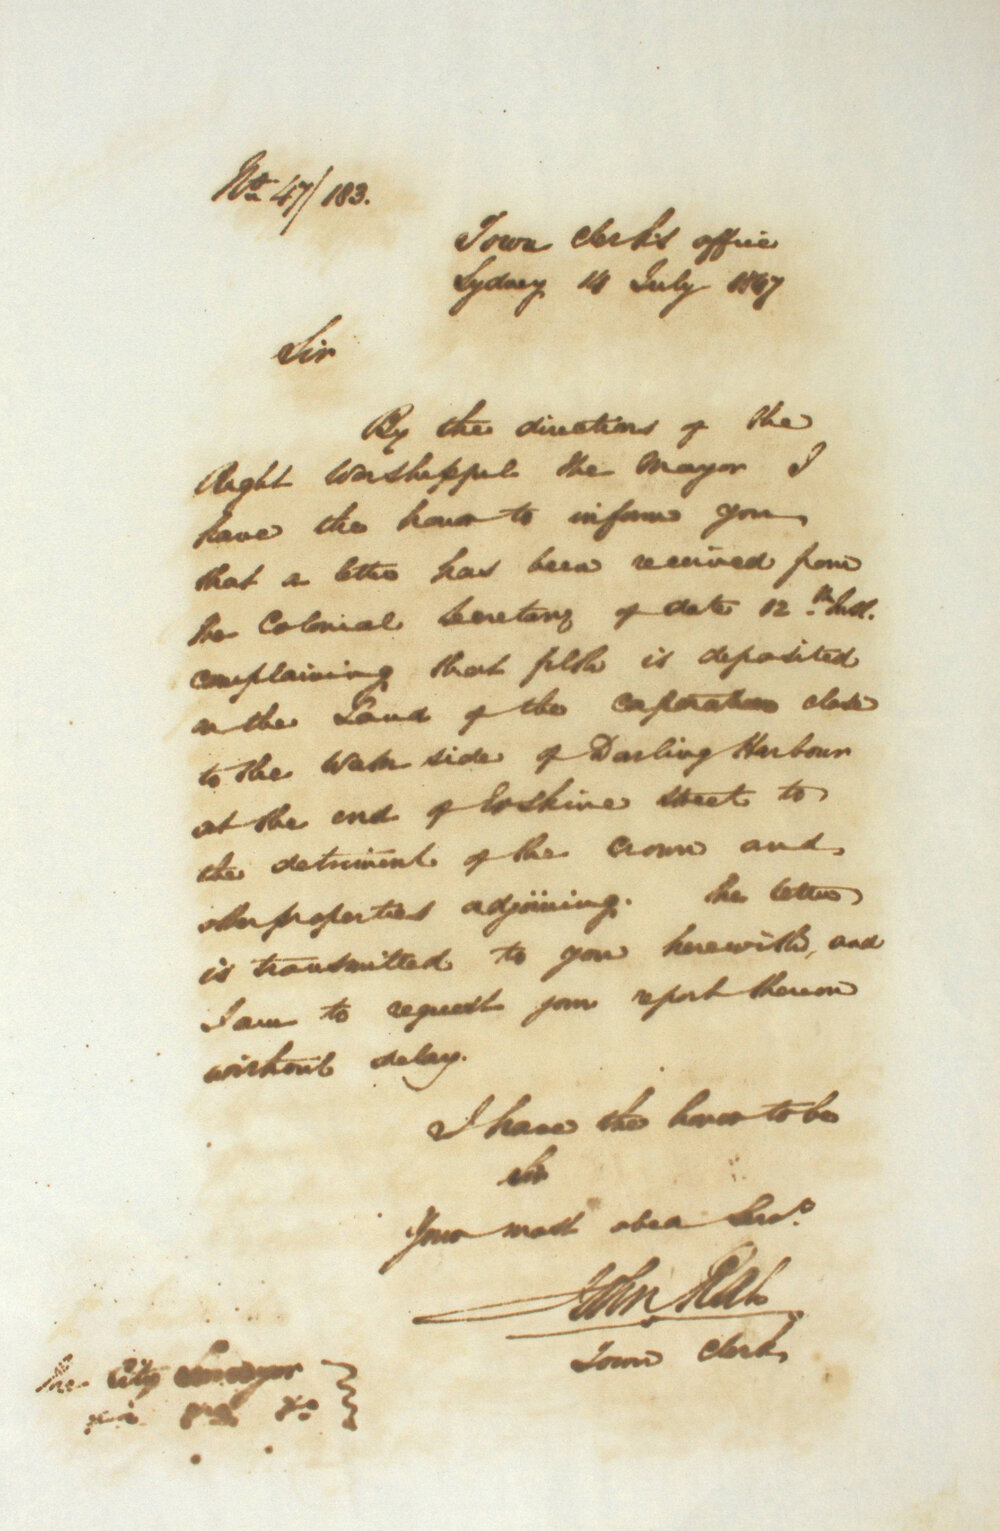 No 47/183.
Town Clerk's office
Sydney 14 July 1847
Sir
By the directions of the
Right Worshipful the Mayor I
have the honor to inform you
that a letter has been received from
the Colonial Secretary of date 12th Inst.
complaining that filth is deposited
on the Land of the Corporation close
to the Water side of Darling Harbour
at the end of Erskine Street to
the detriment of the Crown and
other properties adjoining. The letter
is transmitted to you herewith, and
I am to request your report thereon
without delay.
I have the honor to be
Sir
Your most obed Servt
John Rae
Town Clerk
The City Surveyor
&c &c